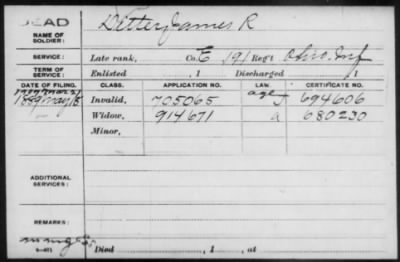 DEAD
NAME OF SOLDIER: Detter, James R
SERVICE: Late rank, Co. E 191 Reg't Ohio Inf
TERM OF SERVICE: Enlisted , 1 Discharged , 1
DATE OF FILING. CLASS. APPLICATION NO. LAW. CERTIFICATE NO.
1889 May 18 Invalid, 705065 J 694606
Widow, 914671 a 680230
Minor,
ADDITIONAL SERVICES:
REMARKS:
Died , 1 , at